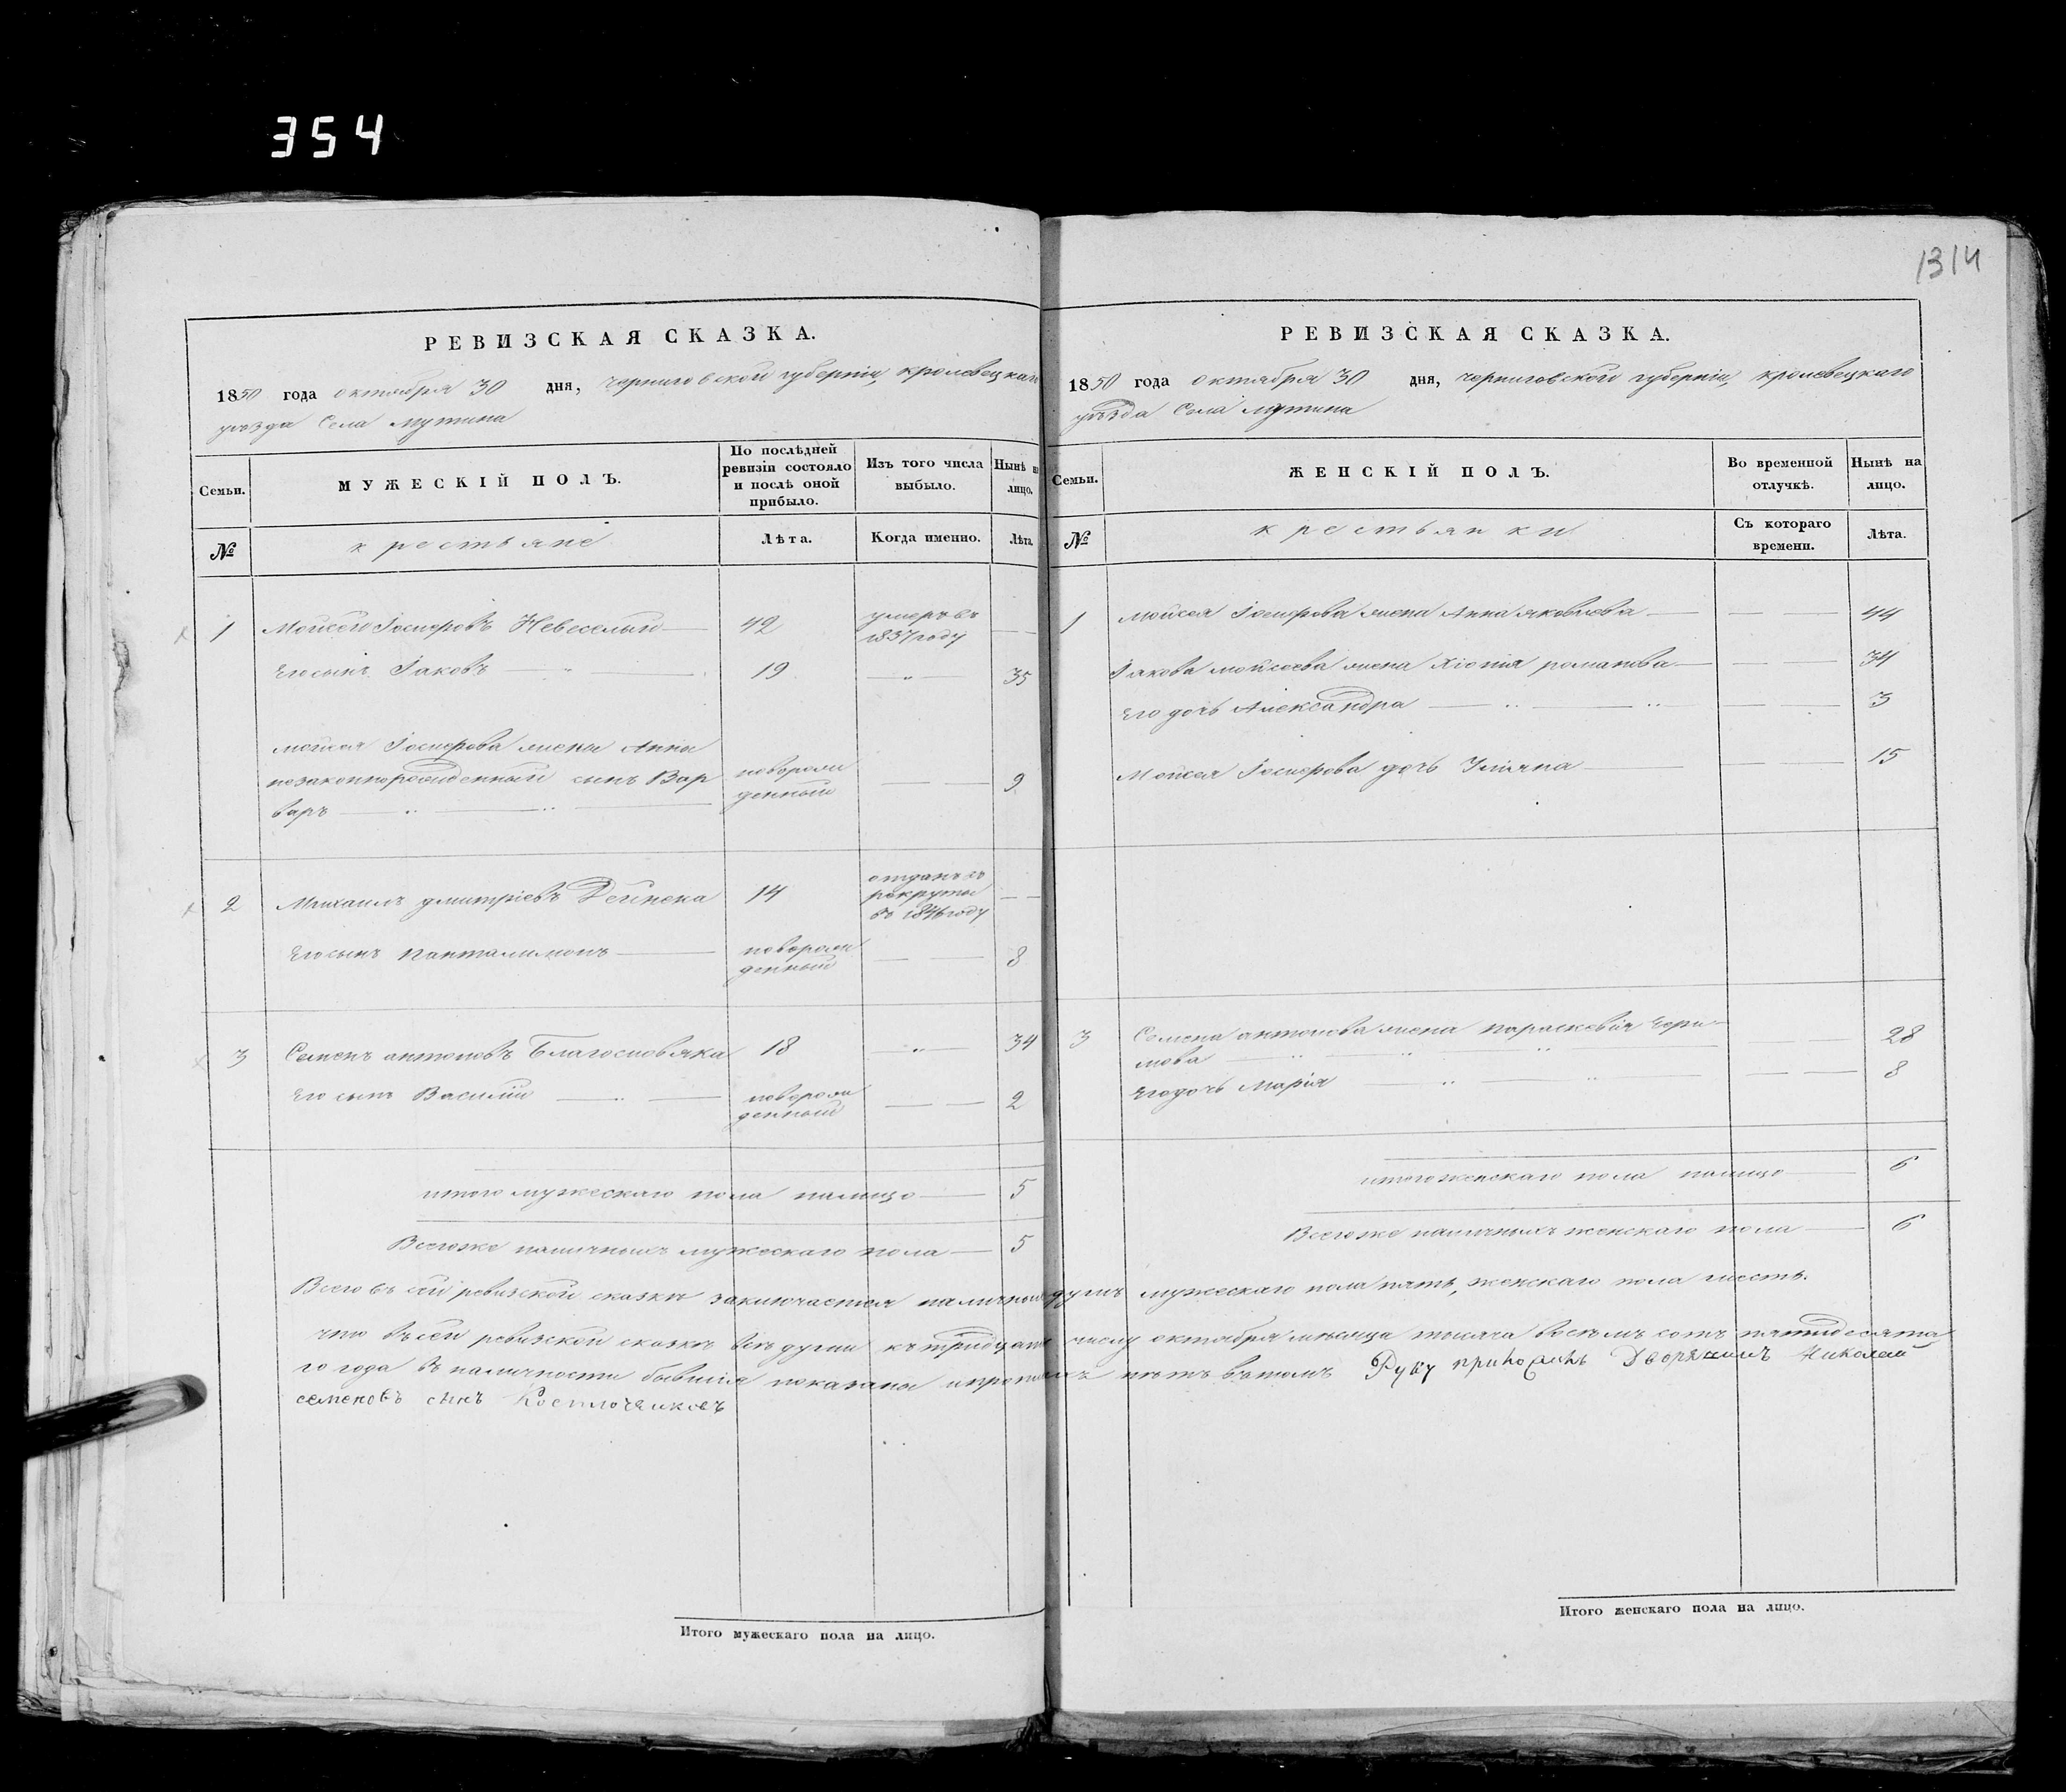 354
1314
РЕВИЗСКАЯ СКАЗКА.
1850 года октября 30 дня, черниговской губерніи, кролевецкаго
уѣзда Села мутина
Семьи.
МУЖЕСКІЙ ПОЛЪ.
По послѣдней ревизіи состояло и послѣ оной прибыло.
Изъ того числа выбыло.
Нынѣ на лицо.
№
крестьяне
Лѣта.
Когда именно.
Лѣта.
1 Мойсей Іосиповъ Невеселый 42 умеръ въ 1837 году
Его сынъ Іаковъ 19 35
мойсея Іосипова жены Анны
незаконнорожденный сынъ Вар
варъ
новорожденный 9
2 Михаилъ дмитріевъ Дейнека 14 отданъ въ рекруты въ 1846 году
Его сынъ Панталимонъ новорожденный 8
3 Семенъ антоновъ 18 34
Его сынъ Василій новорожденный 2
итого мужескаго пола налицо 5
Всего же наличныхъ мужескаго пола 5
РЕВИЗСКАЯ СКАЗКА.
1850 года октября 30 дня, черниговской губерніи, кролевецкаго
уѣзда Села мутина
Семьи.
ЖЕНСКІЙ ПОЛЪ.
Во временной отлучкѣ.
Нынѣ на лицо.
№
крестьянки
Съ котораго времени.
Лѣта.
1 мойсея Іосипова жена Анна яковлева 44
Іакова мойсеева жена Хіонія романова 34
Его дочь Александра 3
Мойсея Іосипова дочь Уліяна 15
3 Семена антонова жена параскевія
28
Его дочь Марія 8
итого женскаго пола налицо 6
Всего же наличныхъ женскаго пола 6
Всего въ сей ревизской сказкѣ заключается наличныхъ душъ мужескаго пола пять, женскаго пола шесть.
что въ сей ревизской сказкѣ всѣ души къ тридцатому числу октября мѣсяца тысяча восемь сотъ пятидесята
го года въ наличности бывшіе показаны и нѣтъ въ томъ Руку приложилъ Дворянинъ Николай
семеновъ сынъ
Итого мужескаго пола на лицо.
Итого женскаго пола на лицо.